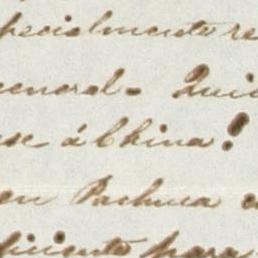 pecialmente re
eneral. Quie
ese á China!
en Pachuca
ficiente para